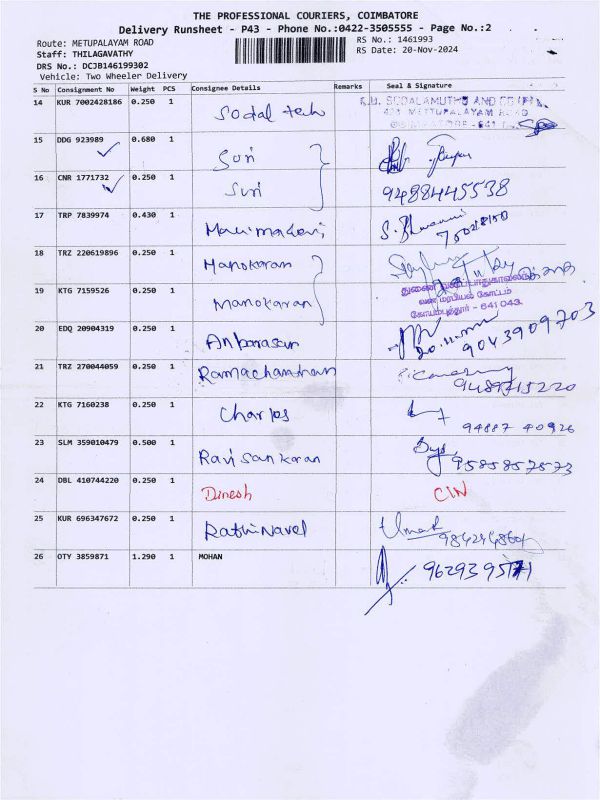 THE PROFESSIONAL COURIERS, COIMBATORE
Delivery Runsheet - P43 - Phone No.:0422-3505555 - Page No.:2
Route: METUPALAYAM ROAD
RS No.: 1461993
Staff: THILAGAVATHY
RS Date: 20-Nov-2024
DRS No.: DCJB146199302
Vehicle: Two Wheeler Delivery
S No Consignment No Weight PCS Consignee Details Remarks Seal & Signature
14 KUR 7002428186 0.250 1 Sodal tech
15 DDG 923989 0.680 1 Suri
16 CNR 1771732 0.250 1 Suri 9488445538
17 TRP 7839974 0.430 1
18 TRZ 220619896 0.250 1 Manokaran
19 KTG 7159526 0.250 1 Manokaran
கோயம்புத்தூர் - 641 043.
20 EDQ 20904319 0.250 1 Anbarasan 9043909703
21 TRZ 270044059 0.250 1 Ramachandran 9489715220
22 KTG 7160238 0.250 1 Charles 94887 40926
23 SLM 359010479 0.500 1 Ravi sankaran 9585857573
24 DBL 410744220 0.250 1 Dinesh CIN
25 KUR 696347672 0.250 1 Rathinavel
26 OTY 3859871 1.290 1 MOHAN